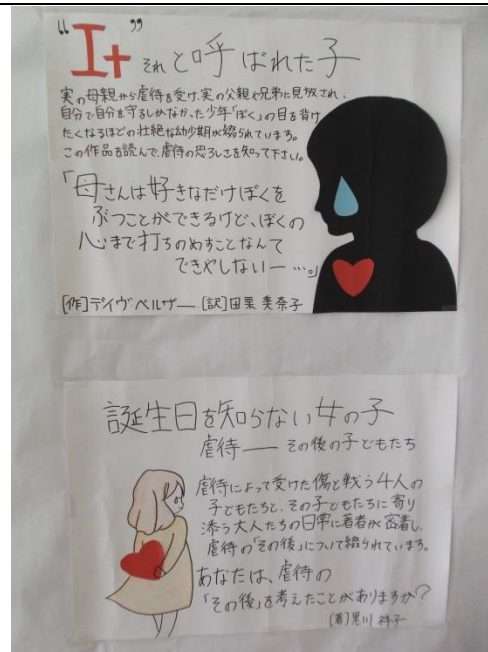 “It” それと呼ばれた子
実の母親から虐待を受け、実の父親や兄弟に見放され、
自分で自分を守るしかなかった少年「ぼく」の目を背け
たくなるほどの壮絶な幼少期が綴られています。
この作品を読んで、虐待の恐ろしさを知って下さい。
「母さんは好きなだけぼくを
ぶつことができるけど、ぼくの
心まで打ちのめすことなんて
できやしないー…。」
[作]デイヴ・ペルザー [訳]田栗美奈子
誕生日を知らない女の子
虐待――その後の子どもたち
虐待によって受けた傷と戦う4人の
子どもたちと、その子どもたちに寄り
添う大人たちの日常に著者が密着し、
虐待の「その後」について綴られています。
あなたは、虐待の
「その後」を考えたことがありますか?
[著]黒川祥子